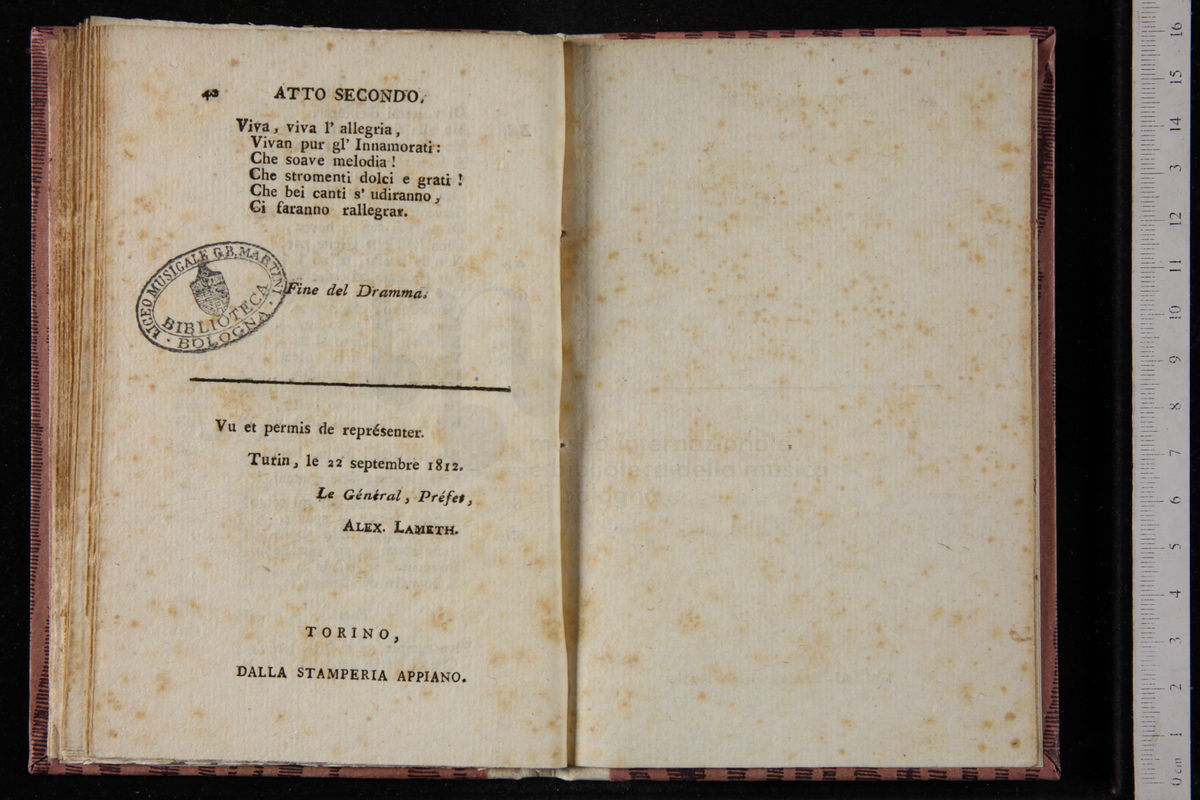 42 ATTO SECONDO.
Viva, viva l' allegria,
Vivan pur gl' Innamorati:
Che soave melodia!
Che stromenti dolci e grati!
Che bei canti s' udiranno,
Ci faranno rallegrar.
LICEO MUSICALE G.B. MARTINI
BIBLIOTECA
BOLOGNA
Fine del Dramma.
Vu et permis de représenter.
Turin, le 22 septembre 1812.
Le Général, Préfet,
ALEX. LAMETH.
TORINO,
DALLA STAMPERIA APPIANO.
museo internazionale
e biblioteca della musica
di bologna
16
15
14
13
12
11
10
9
8
7
6
5
4
3
2
1
0 cm